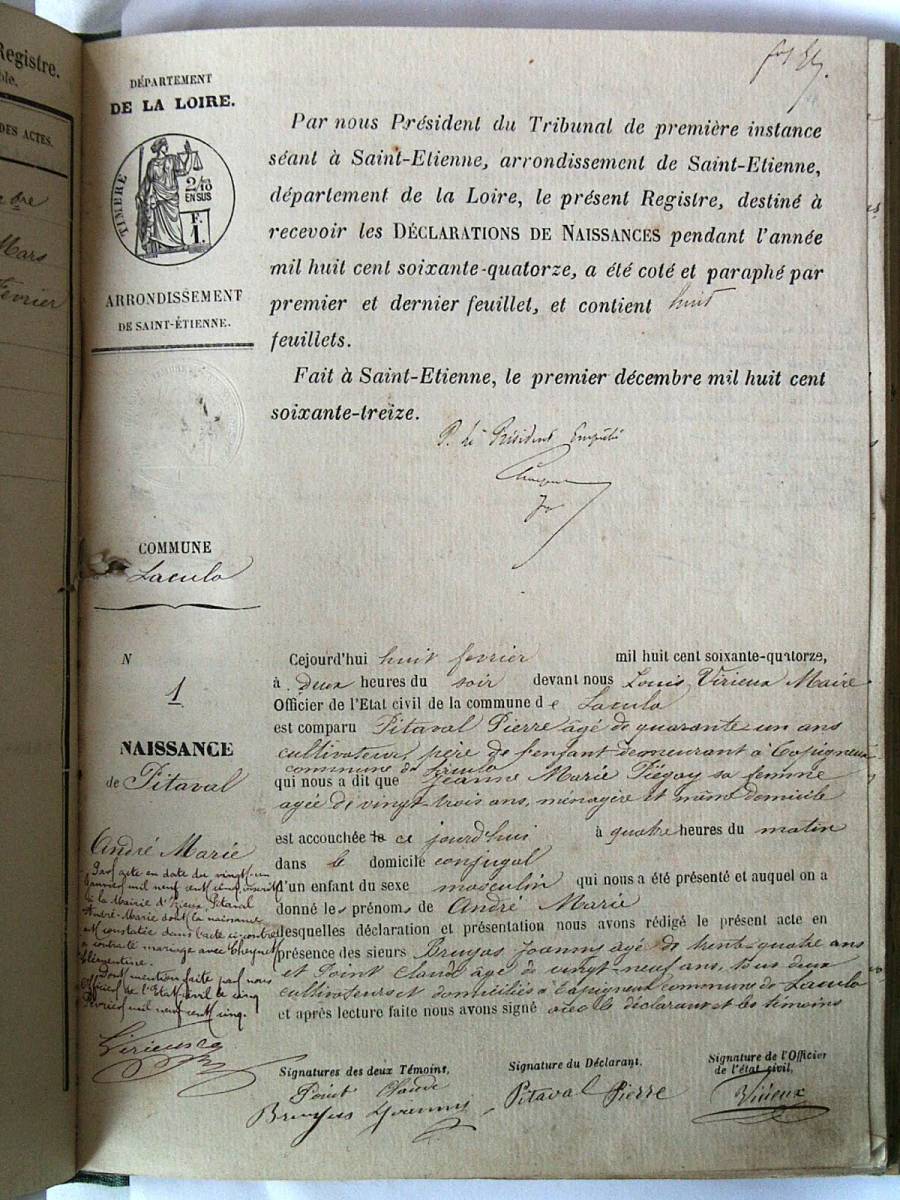 Registre.
ble.
DES ACTES.
bre
Mars
Février
DÉPARTEMENT
DE LA LOIRE.
TIMBRE
2/10
EN SUS
F.
1.
ARRONDISSEMENT
DE SAINT-ÉTIENNE.
Par nous Président du Tribunal de première instance
séant à Saint-Etienne, arrondissement de Saint-Etienne,
département de la Loire, le présent Registre, destiné à
recevoir les DÉCLARATIONS DE NAISSANCES pendant l'année
mil huit cent soixante-quatorze, a été coté et paraphé par
premier et dernier feuillet, et contient huit
feuillets.
Fait à Saint-Etienne, le premier décembre mil huit cent
soixante-treize.
P. le Président Empêché
COMMUNE
Lacula
N
1
NAISSANCE
de Pitaval
André Marie
Par acte en date du vingt-un
janvier mil neuf cent cinq inscrit
à la Mairie d'Izieux Pitaval
André-Marie dont la naissance
est constatée dans l'acte ci-contre
a contracté mariage avec
Clémentine.
Dont mention faite par nous
Officier de l'Etat civil le cinq
février mil neuf cent cinq.
Virieux
Cejourd'hui huit fevrier mil huit cent soixante-quatorze,
à deux heures du soir devant nous Louis Virieux Maire
Officier de l'Etat civil de la commune de Lacula
est comparu Pitaval Pierre âgé de quarante-un ans
cultivateur, père de l'enfant demeurant à
commune de Lacula
qui nous a dit que Jeanne Marie sa femme
agée de vingt-trois ans, ménagère et même domicile
est accouchée ce jourd'hui à quatre heures du matin
dans le domicile conjugal
d'un enfant du sexe masculin qui nous a été présenté et auquel on a
donné les prénoms de André Marie
lesquelles déclaration et présentation nous avons rédigé le présent acte en
présence des sieurs Bruyas Joanny agé de trente-quatre ans
et Point Claude âgé de vingt-neuf ans, tous deux
cultivateurs et domiciliés à commune de Lacula
et après lecture faite nous avons signé avec le déclarant et les témoins
Signatures des deux Témoins,
Point Claude
Bruyas Joanny
Signature du Déclarant,
Pitaval Pierre
Signature de l'Officier
de l'état civil,
Virieux